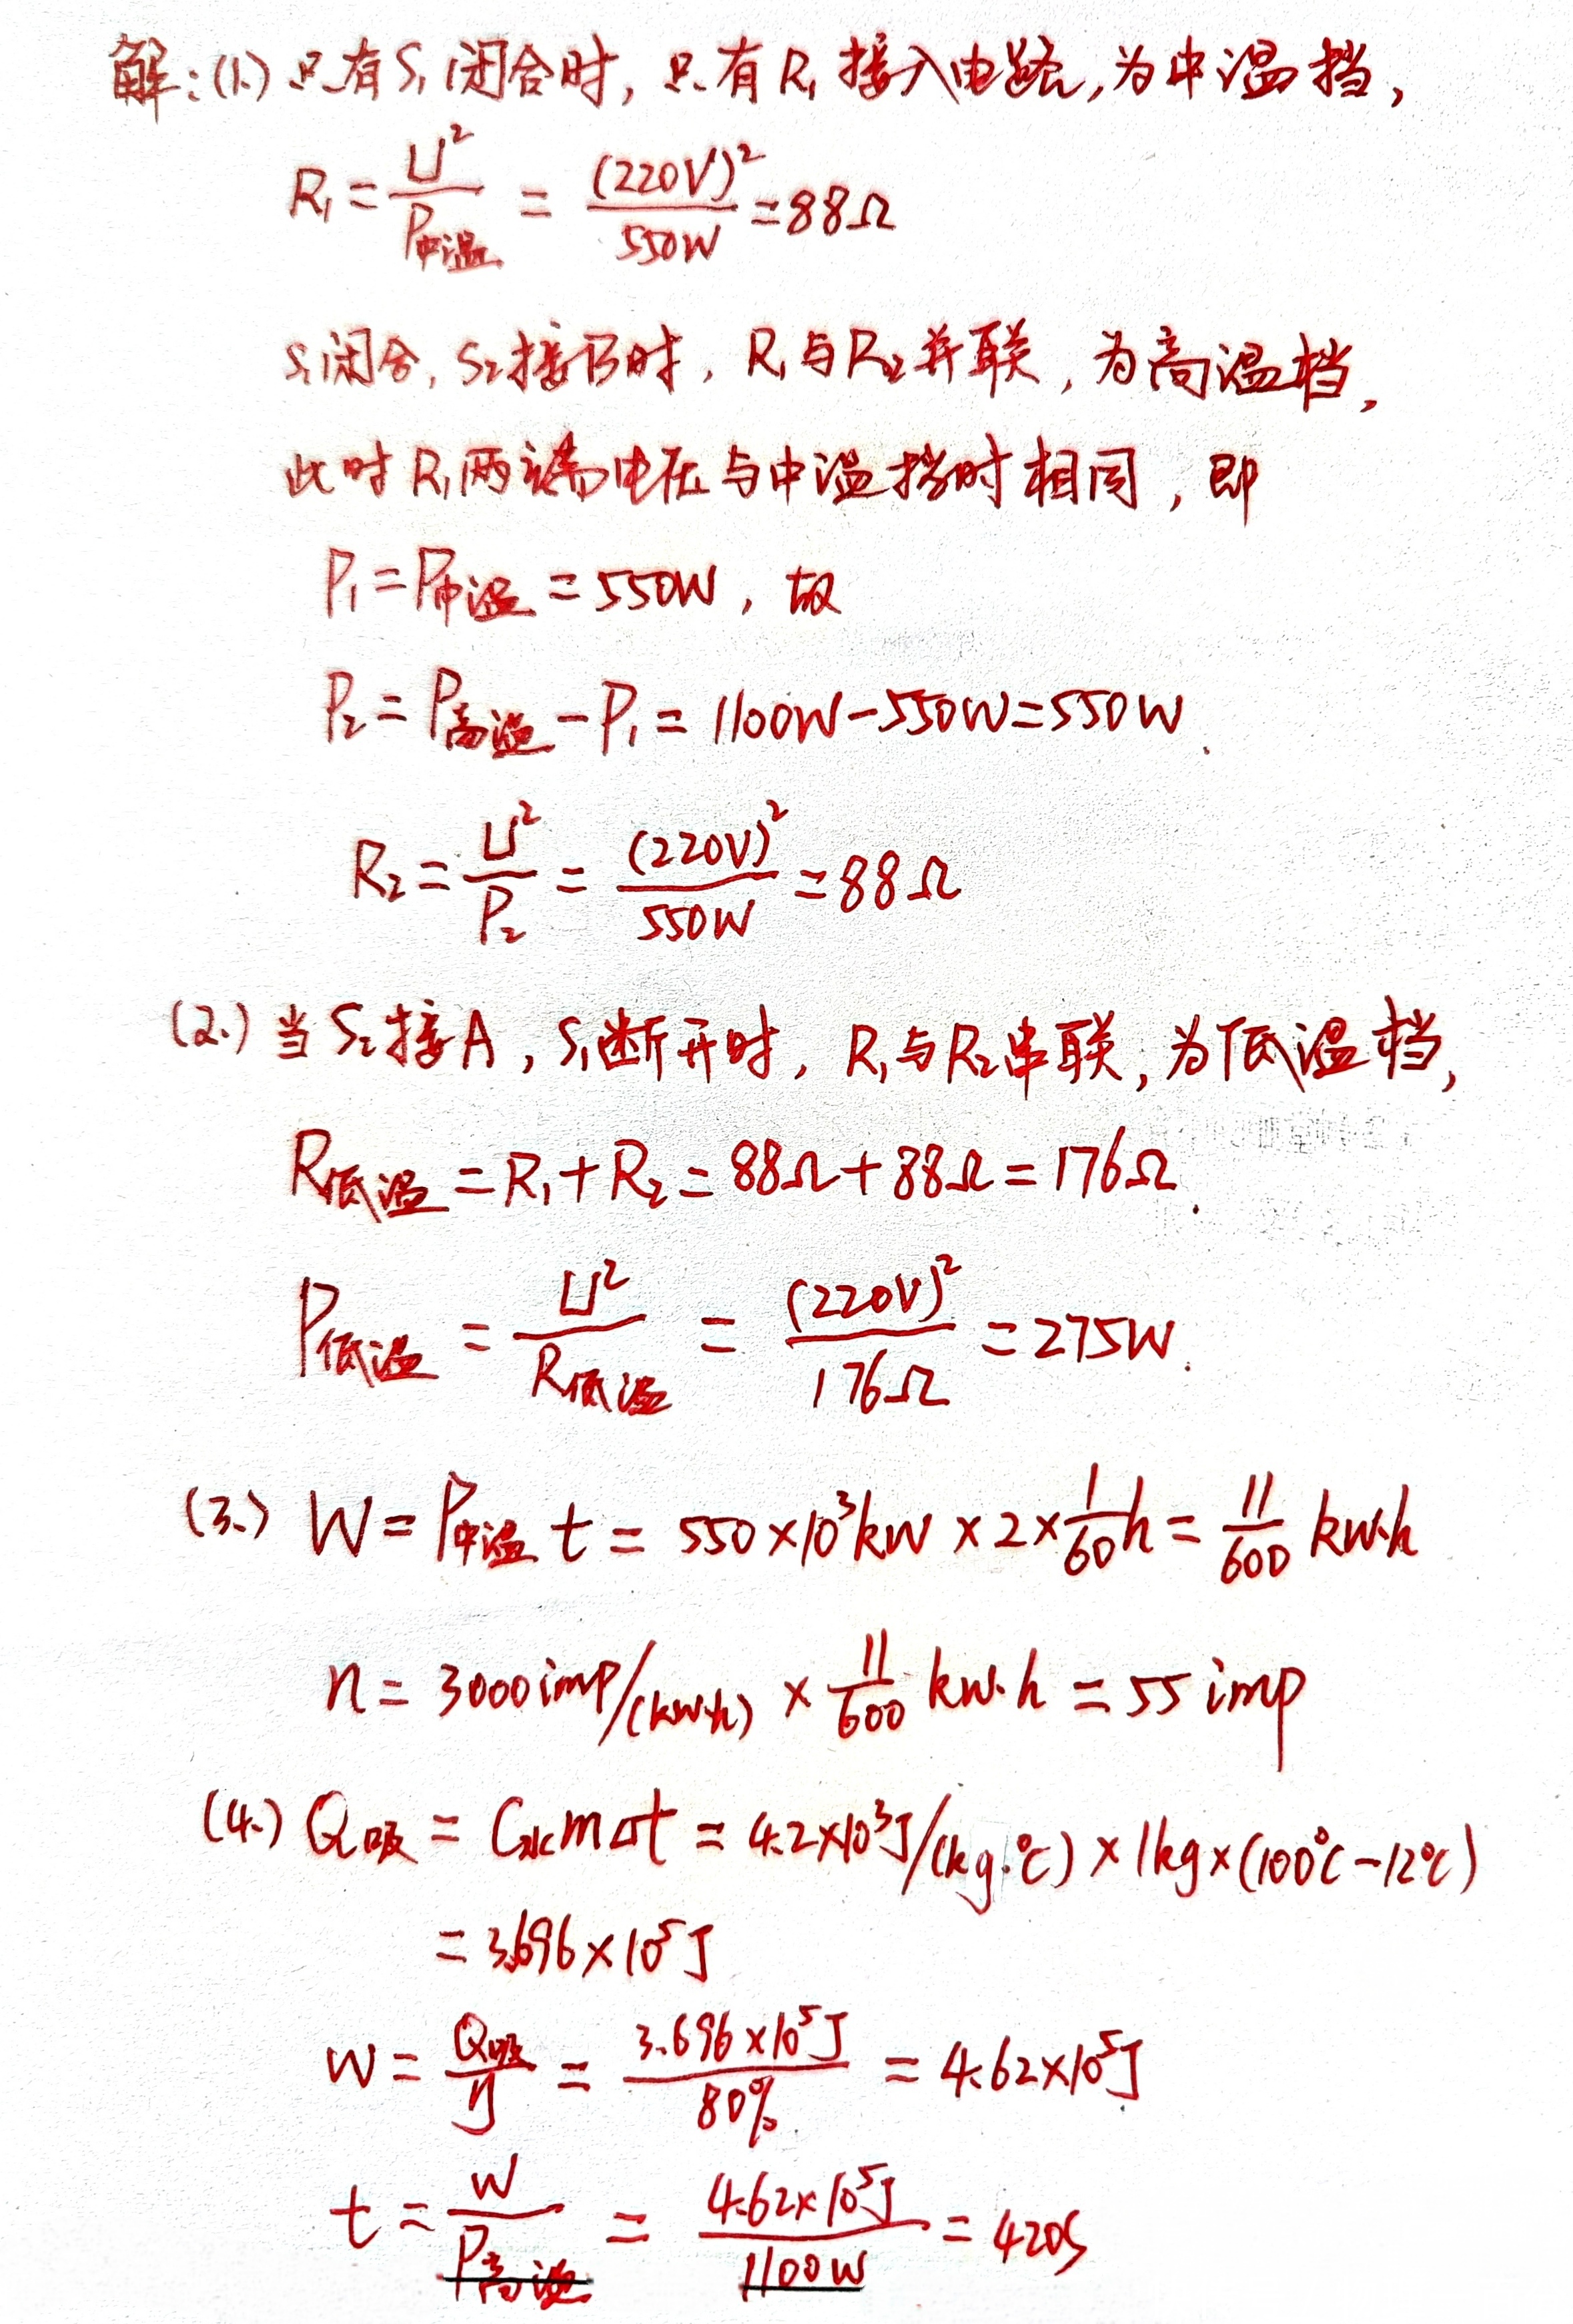 解:(1.)只有S₁闭合时,只有R₁接入电路,为中温挡,
R₁=U²/P中温=(220V)²/550W=88Ω
S₁闭合,S₂接B时,R₁与R₂并联,为高温档,
此时R₁两端电压与中温挡时相同,即
P₁=P中温=550W,故
P₂=P高温-P₁=1100W-550W=550W.
R₂=U²/P₂=(220V)²/550W=88Ω
(2.)当S₂接A,S₁断开时,R₁与R₂串联,为低温档,
R低温=R₁+R₂=88Ω+88Ω=176Ω.
P低温=U²/R低温=(220V)²/176Ω=275W.
(3.) W=P中温t=550×10³kW×2×1/60h=11/600kw·h
n=3000imp/(kw·h)×11/600kw·h=55imp
(4.) Q吸=C水mΔt=4.2×10³J/(kg·℃)×1kg×(100℃-12℃)
=3.696×10⁵J
W=Q吸/η=3.696×10⁵J/80%=4.62×10⁵J
t=W/P高温=4.62×10⁵J/1100W=420s